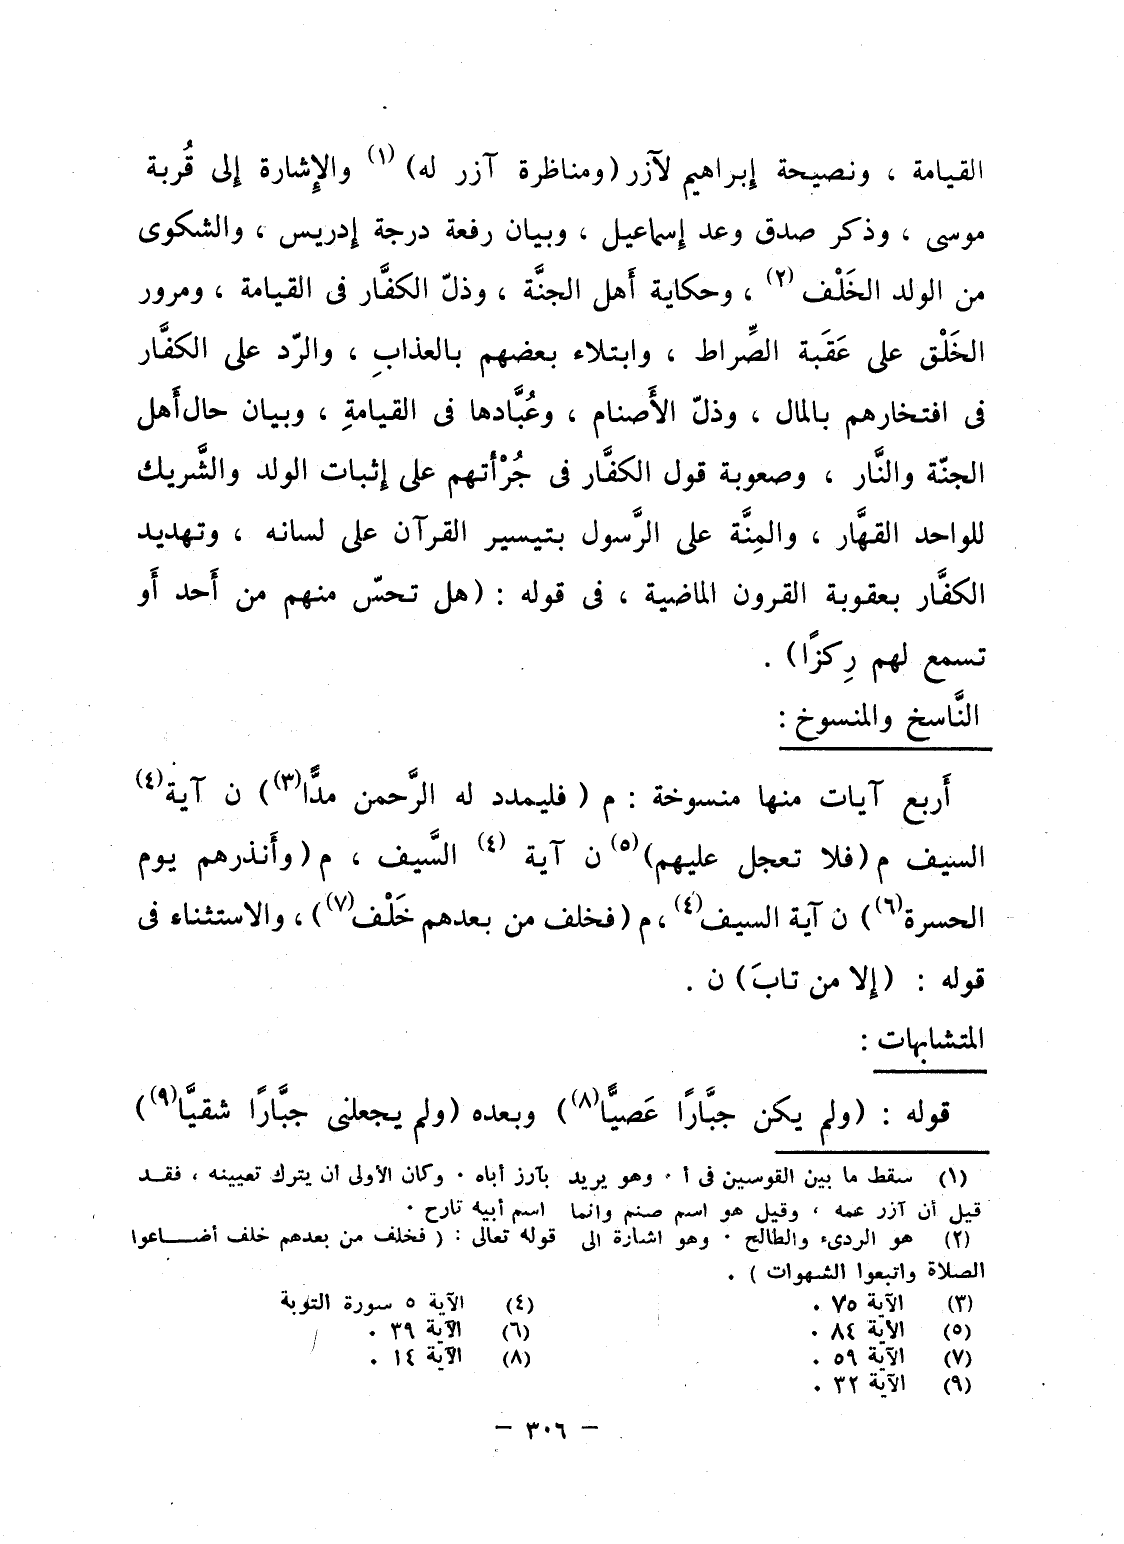 القيامة ، ونصيحة إبراهيم لآزر (ومناظرة آزر له) (١) والإشارة إلى قُربة
موسى ، وذكر صدق وعد إسماعيل ، وبيان رفعة درجة إدريس ، والشكوى
من الولد الخَلْف (٢) ، وحكاية أهل الجنَّة ، وذلّ الكفَّار فى القيامة ، ومرور
الخَلْق على عَقَبة الصِّراط ، وابتلاء بعضهم بالعذابِ ، والرّد على الكفَّار
فى افتخارهم بالمال ، وذلّ الأَصنام ، وعُبَّادها فى القيامةِ ، وبيان حال أَهل
الجنّة والنَّار ، وصعوبة قول الكفَّار فى جُرْأتهم على إثبات الولد والشَّريك
للواحد القهَّار ، والمِنَّة على الرَّسول بتيسير القرآن على لسانه ، وتهديد
الكفَّار بعقوبة القرون الماضية ، فى قوله : (هل تحسّ منهم من أَحد أَو
تسمع لهم رِكزًا) .
النَّاسخ والمنسوخ :
أَربع آيات منها منسوخة : م ( فليمدد له الرَّحمن مدًّا(٣)) ن آية(٤)
السيف م (فلا تعجل عليهم)(٥) ن آية (٤) السَّيف ، م (وأَنذرهم يوم
الحسرة(٦)) ن آية السيف(٤) ، م (فخلف من بعدهم خَلْف(٧)) ، والاستثناء فى
قوله : (إلا من تابَ) ن .
المتشابهات :
قوله : (ولم يكن جبَّارًا عَصيًّا(٨)) وبعده (ولم يجعلنى جبَّارًا شقيًّا(٩))
(١) سقط ما بين القوسين فى أ ٠ وهو يريد بآزر أباه ٠ وكان الأولى أن يترك تعيينه ، فقــد
قيل أن آزر عمه ، وقيل هو اسم صنم وانما اسم أبيه تارح ٠
(٢) هو الردىء والطالح ٠ وهو اشارة الى قوله تعالى : ( فخلف من بعدهم خلف أضــــاعوا
الصلاة واتبعوا الشهوات ) .
(٣) الآية ٧٥ . (٤) الآية ٥ سورة التوبة
(٥) الآية ٨٤ . (٦) الآية ٣٩ .
(٧) الآية ٥٩ . (٨) الآية ١٤ .
(٩) الآية ٣٢ .
– ٣٠٦ –